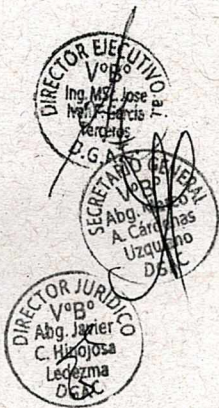 DIRECTOR EJECUTIVO a.i.
VºBº
Ing. MSc. Jose
Ivan F. García
Terceros
D.G.A.C.
SECRETARIO GENERAL
VºBº
Abg.
A. Cárdenas
Uzqueño
DGAC
DIRECTOR JURIDICO
VºBº
Abg. Javier
C. Hinojosa
Ledezma
DGAC